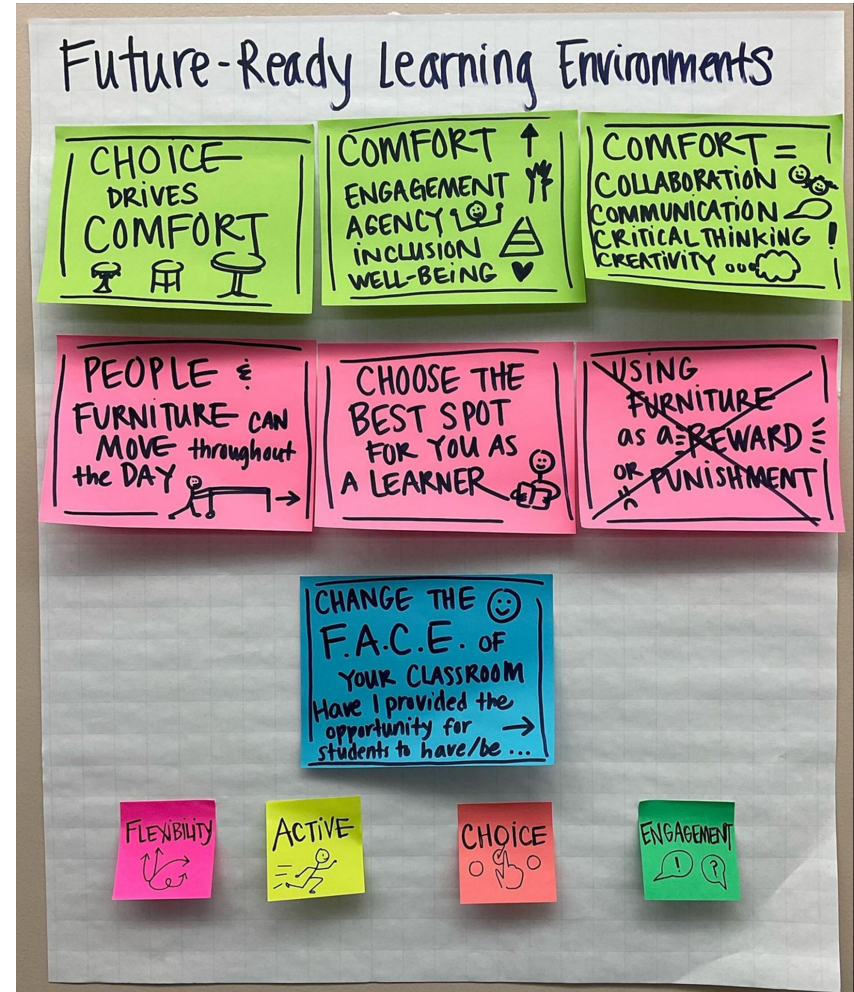 Future-Ready Learning Environments
CHOICE
DRIVES
COMFORT
COMFORT
ENGAGEMENT
AGENCY
INCLUSION
WELL-BEING
COMFORT =
COLLABORATION
COMMUNICATION
CRITICAL THINKING !
CREATIVITY
PEOPLE &
FURNITURE CAN
MOVE throughout
the DAY
CHOOSE THE
BEST SPOT
FOR YOU AS
A LEARNER
USING
FURNITURE
as a REWARD
OR PUNISHMENT
CHANGE THE
F.A.C.E. OF
YOUR CLASSROOM
Have I provided the
opportunity for
students to have/be ...
FLEXIBILITY
ACTIVE
CHOICE
ENGAGEMENT
! ?